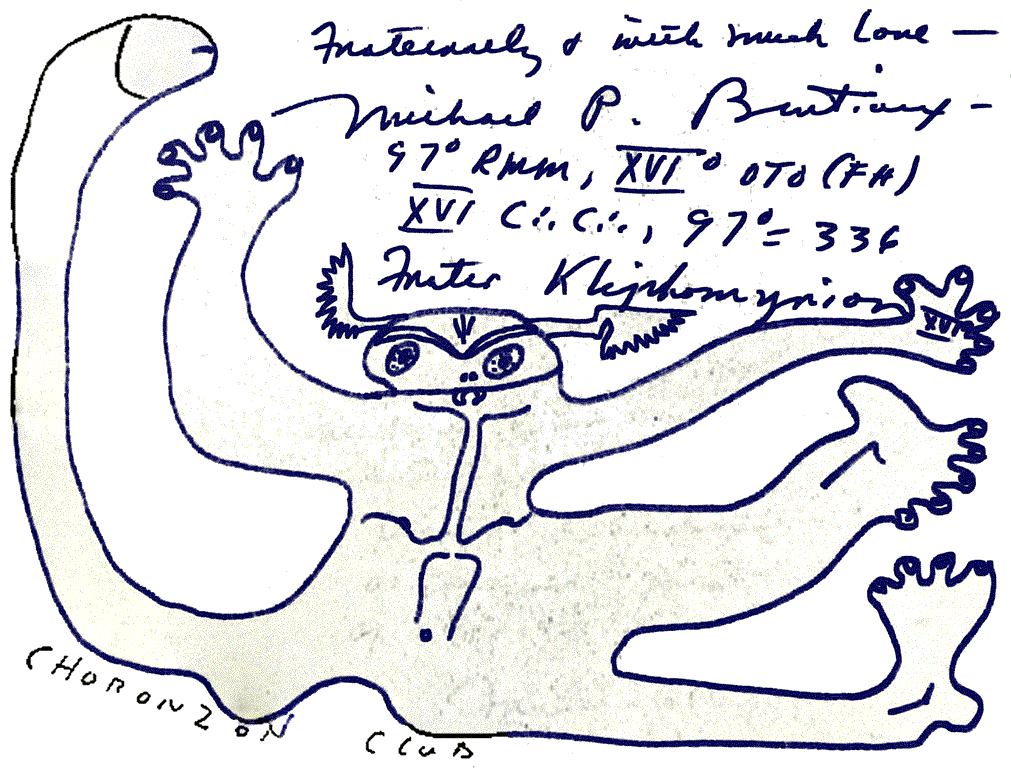 Fraternally & with much Love —
Michael P. Bertiaux -
97° RMM, XVI° OTO (FH)
XVI C∴C∴, 97°= 336
Frater Kliphomynion
XVI°
CHORONZON CLUB